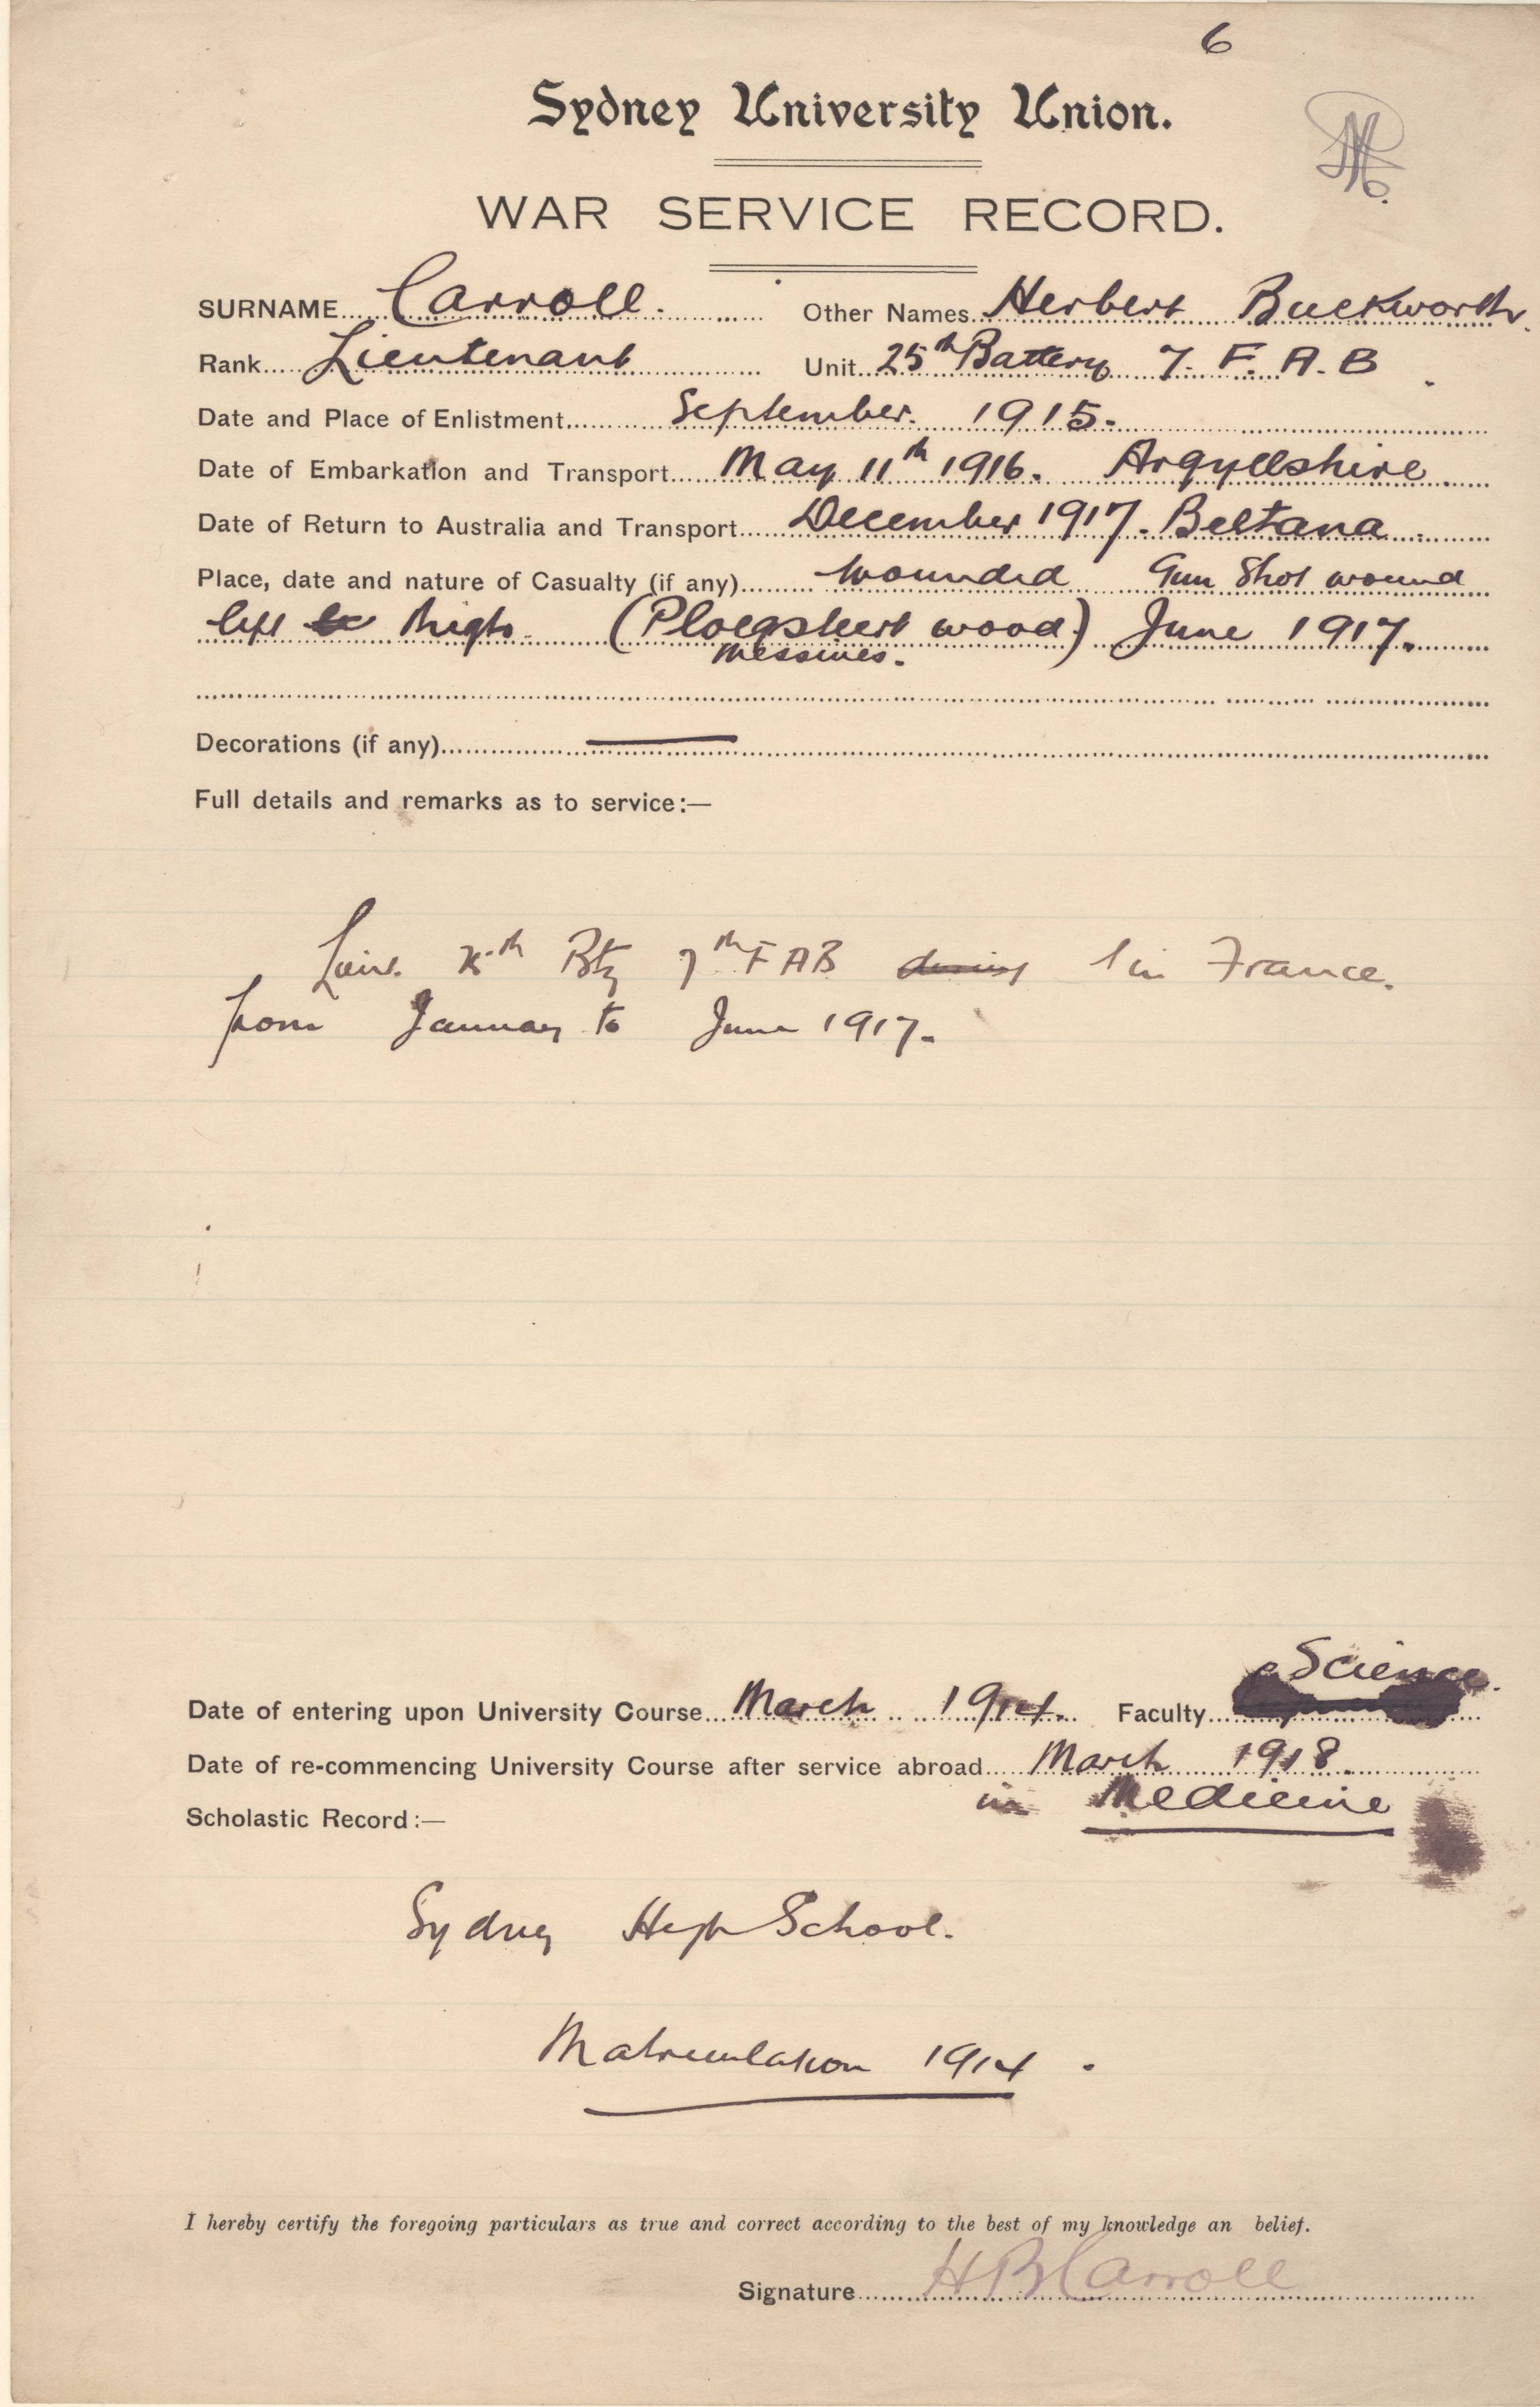 6
Sydney University Union.
WAR SERVICE RECORD.
SURNAME Carroll. Other Names Herbert Buckworth.
Rank Lieutenant Unit 25th Battery 7. F. A. B.
Date and Place of Enlistment September. 1915.
Date of Embarkation and Transport May 11th 1916. Argyllshire
Date of Return to Australia and Transport December 1917. Beltana
Place, date and nature of Casualty (if any) Wounded Gun Shot wound
left thigh (Ploegsteert wood) June 1917.
Messines.
Decorations (if any) —
Full details and remarks as to service:—
Lieut. 25th Bty 7th FAB during in France.
from January to June 1917.
Science.
Date of entering upon University Course March 1914. Faculty
Date of re-commencing University Course after service abroad March 1918.
in Medicine
Scholastic Record:—
Sydney High School.
Matriculation 1914.
I hereby certify the foregoing particulars as true and correct according to the best of my knowledge an belief.
Signature H B Carroll